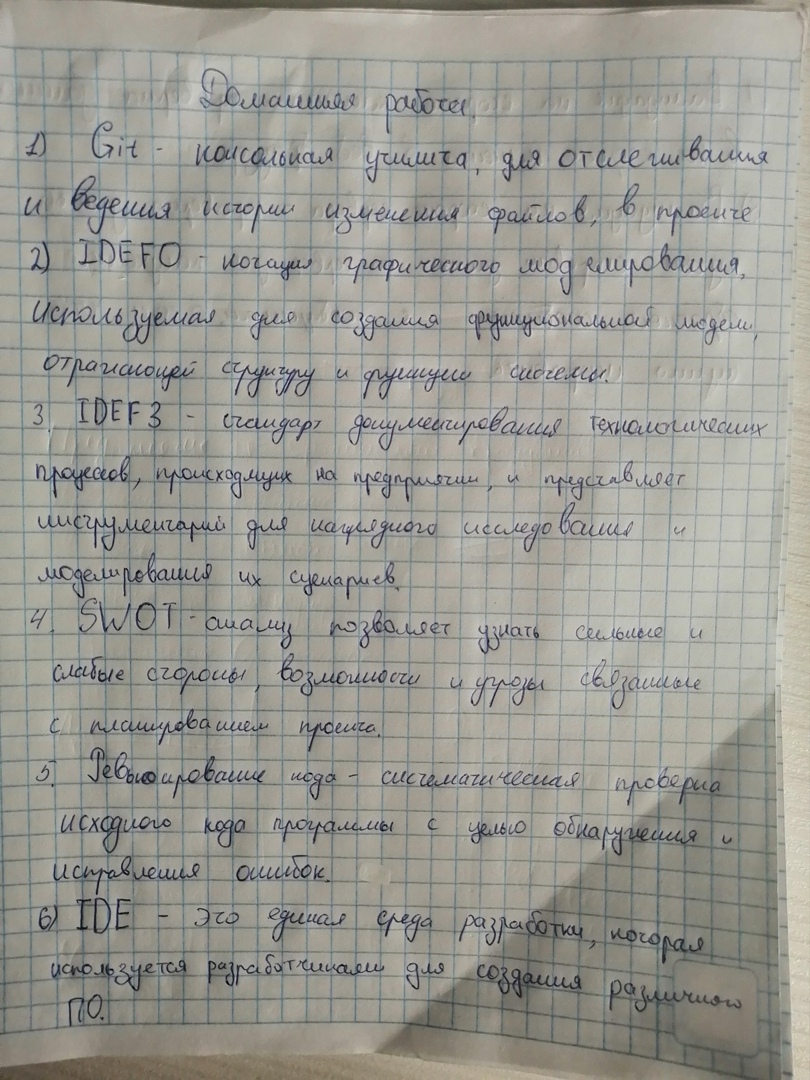 Домашняя работа.
1) Git - консольная утилита, для отслеживания
и ведения истории изменения файлов, в проекте
2) IDEFO - нотация графического моделирования,
используемая для создания функциональной модели,
отражающей структуру и функции системы.
3. IDEF3 - стандарт документирования технологических
процессов, происходящих на предприятии, и представляет
инструментарий для наглядного исследования и
моделирования их сценариев.
4. SWOT-анализ позволяет узнать сильные и
слабые стороны, возможности и угрозы связанные
с планированием проекта.
5. Ревьюирование кода - систематическая проверка
исходного кода программы с целью обнаружения и
исправления ошибок.
6) IDE - Это единая среда разработки, которая
используется разработчиками для создания различного
ПО.